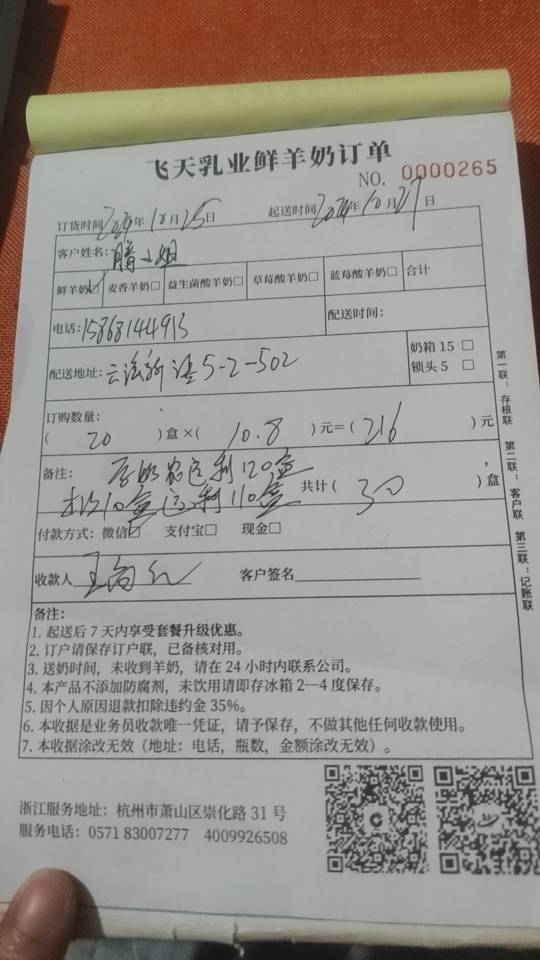 飞天乳业鲜羊奶订单
NO. 0000265
订货时间2024年10月25日 起送时间2024年10月27日
客户姓名: 腊小姐
鲜羊奶☑ 麦香羊奶□ 益生菌酸羊奶□ 草莓酸羊奶□ 蓝莓酸羊奶□ 合计
电话:15868144913 配送时间:
配送地址: 5-2-502 奶箱 15 □
锁头 5 □
订购数量:
( 20 )盒×( 10.8 )元=( 216 )元
备注: 120盒
10盒 110盒 共计( 30 )盒
付款方式: 微信☑ 支付宝□ 现金□
收款人 客户签名
备注:
1. 起送后 7 天内享受套餐升级优惠。
2. 订户请保存订户联,已备核对用。
3. 送奶时间,未收到羊奶,请在 24 小时内联系公司。
4. 本产品不添加防腐剂,未饮用请即存冰箱 2—4 度保存。
5. 因个人原因退款扣除违约金 35%。
6. 本收据是业务员收款唯一凭证,请予保存,不做其他任何收款使用。
7. 本收据涂改无效(地址:电话,瓶数,金额涂改无效)。
第一联:存根联 第二联:客户联 第三联:记账联
浙江服务地址:杭州市萧山区崇化路 31 号
服务电话:0571 83007277 4009926508